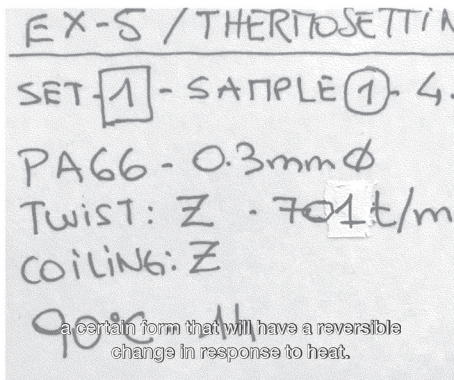 EX-5 / THERMOSETTIN
SET-1 - SAMPLE 1 - 4.
PA66 - 0.3mm Ø
TWIST: Z - 701 t/m
COILING: Z
90°C - 1h
a certain form that will have a reversible
change in response to heat.